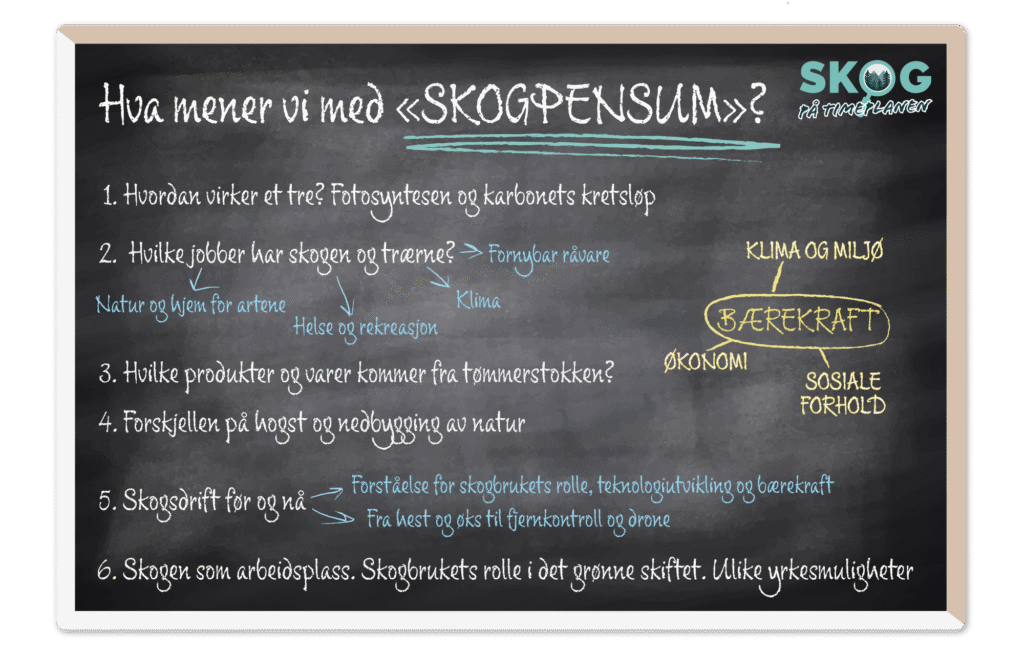 Hva mener vi med «SKOGPENSUM»?
SKOG
PÅ TIMEPLANEN
1. Hvordan virker et tre? Fotosyntesen og karbonets kretsløp
2. Hvilke jobber har skogen og trærne?
Fornybar råvare
Natur og hjem for artene
Helse og rekreasjon
Klima
3. Hvilke produkter og varer kommer fra tømmerstokken?
4. Forskjellen på hogst og nedbygging av natur
5. Skogsdrift før og nå
Forståelse for skogbrukets rolle, teknologiutvikling og bærekraft
Fra hest og øks til fjernkontroll og drone
6. Skogen som arbeidsplass. Skogbrukets rolle i det grønne skiftet. Ulike yrkesmuligheter
KLIMA OG MILJØ
BÆREKRAFT
ØKONOMI
SOSIALE
FORHOLD